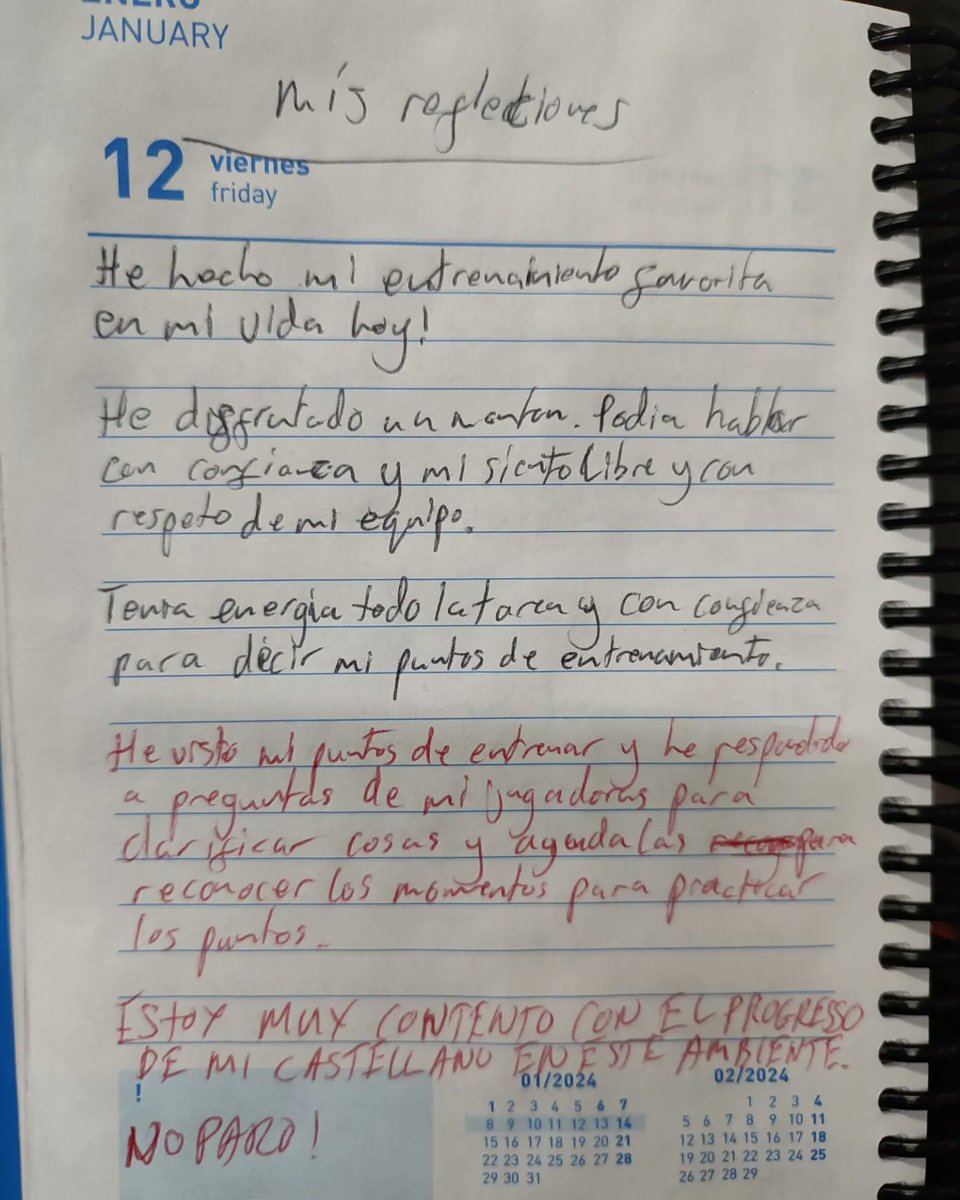 ENERO
JANUARY
mis reflectiones
12 viernes
friday
He hecho mi entrenamiento favorita
en mi vida hoy!
He disfrutado un monton. Podia hablar
con confianza y mi siento libre y con
respeto de mi equipo.
Tenia energia todo la tarea y con confienza
para decir mi puntos de entrenamiento.
He visto mi puntos de entrenar y he respondido
a preguntas de mi jugadoras para
clarificar cosas y aguda las para
reconocer los momentos para practicar
los puntos.
ESTOY MUY CONTENTO CON EL PROGRESSO
DE MI CASTELLANO EN ESTE AMBIENTE.
!
NO PARO!
01/2024
1 2 3 4 5 6 7
8 9 10 11 12 13 14
15 16 17 18 19 20 21
22 23 24 25 26 27 28
29 30 31
02/2024
1 2 3 4
5 6 7 8 9 10 11
12 13 14 15 16 17 18
19 20 21 22 23 24 25
26 27 28 29